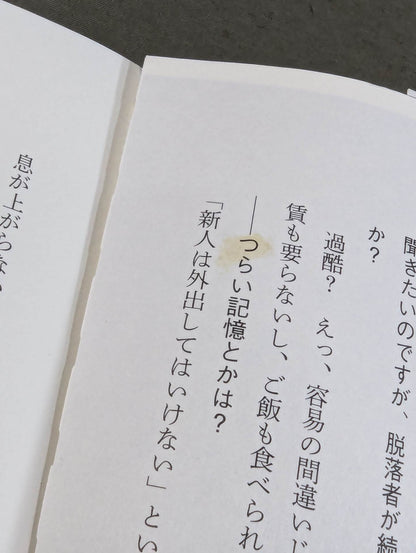 聞きたいのですが、脱落者が続
か？
過酷？　えっ、容易の間違いじ
賃も要らないし、ご飯も食べられ
──つらい記憶とかは？
「新人は外出してはいけない」とい
息が上がらない